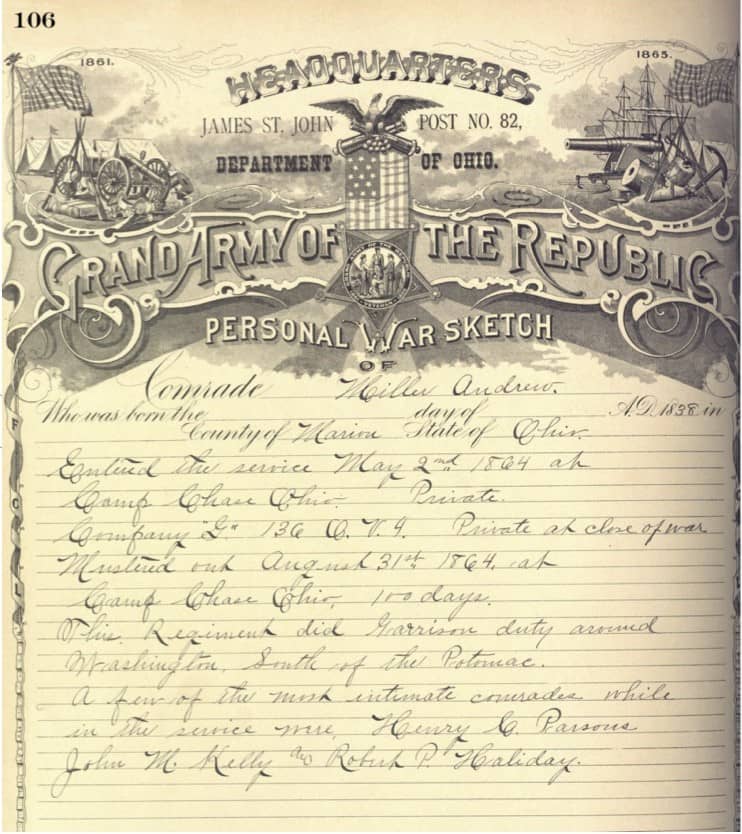 106
1861.
1865.
HEADQUARTERS
JAMES ST. JOHN POST NO. 82,
DEPARTMENT OF OHIO.
GRAND ARMY OF THE REPUBLIC
PERSONAL WAR SKETCH
OF
Comrade Miller Andrew.
Who was born the day of A.D. 1838 in
County of Marion State of Ohio.
Entered the service May 2nd 1864 at
Camp Chase Ohio. Private.
Company "G" 136 O. V. I. Private at close of war
Mustered out August 31st 1864. at
Camp Chase Ohio, 100 days.
This Regiment did Garrison duty around
Washington. South of the Potomac.
A few of the most intimate comrades while
in the service were, Henry C. Parsons
John M. Kelly Robert P. Haliday.